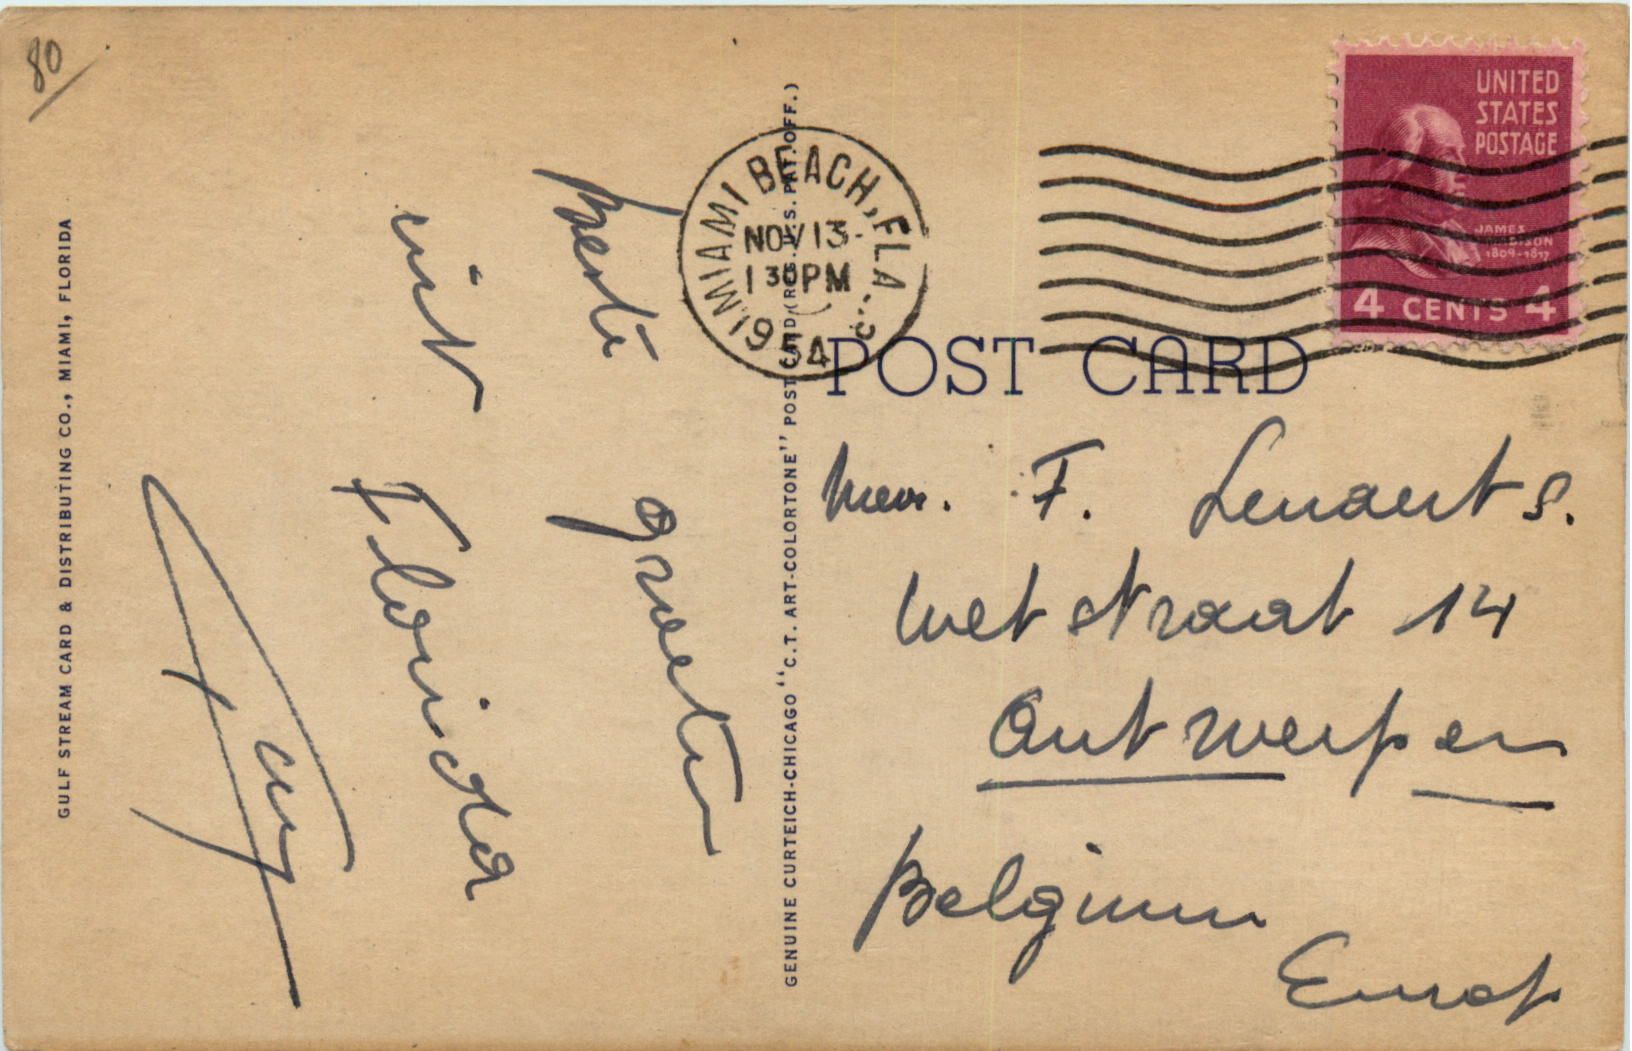 80
GULF STREAM CARD & DISTRIBUTING CO., MIAMI, FLORIDA
beste groeten
uit Florida
GENUINE CURTEICH-CHICAGO "C.T. ART-COLORTONE" POST CARD (REG. U.S. PAT. OFF.)
MIAMI BEACH, FLA.
NOV 13
1 30 PM
1954
UNITED
STATES
POSTAGE
JAMES
MADISON
1809-1817
4 CENTS 4
POST CARD
Mevr. F. Lenaerts.
Wetstraat 14
Antwerpen
Belgium